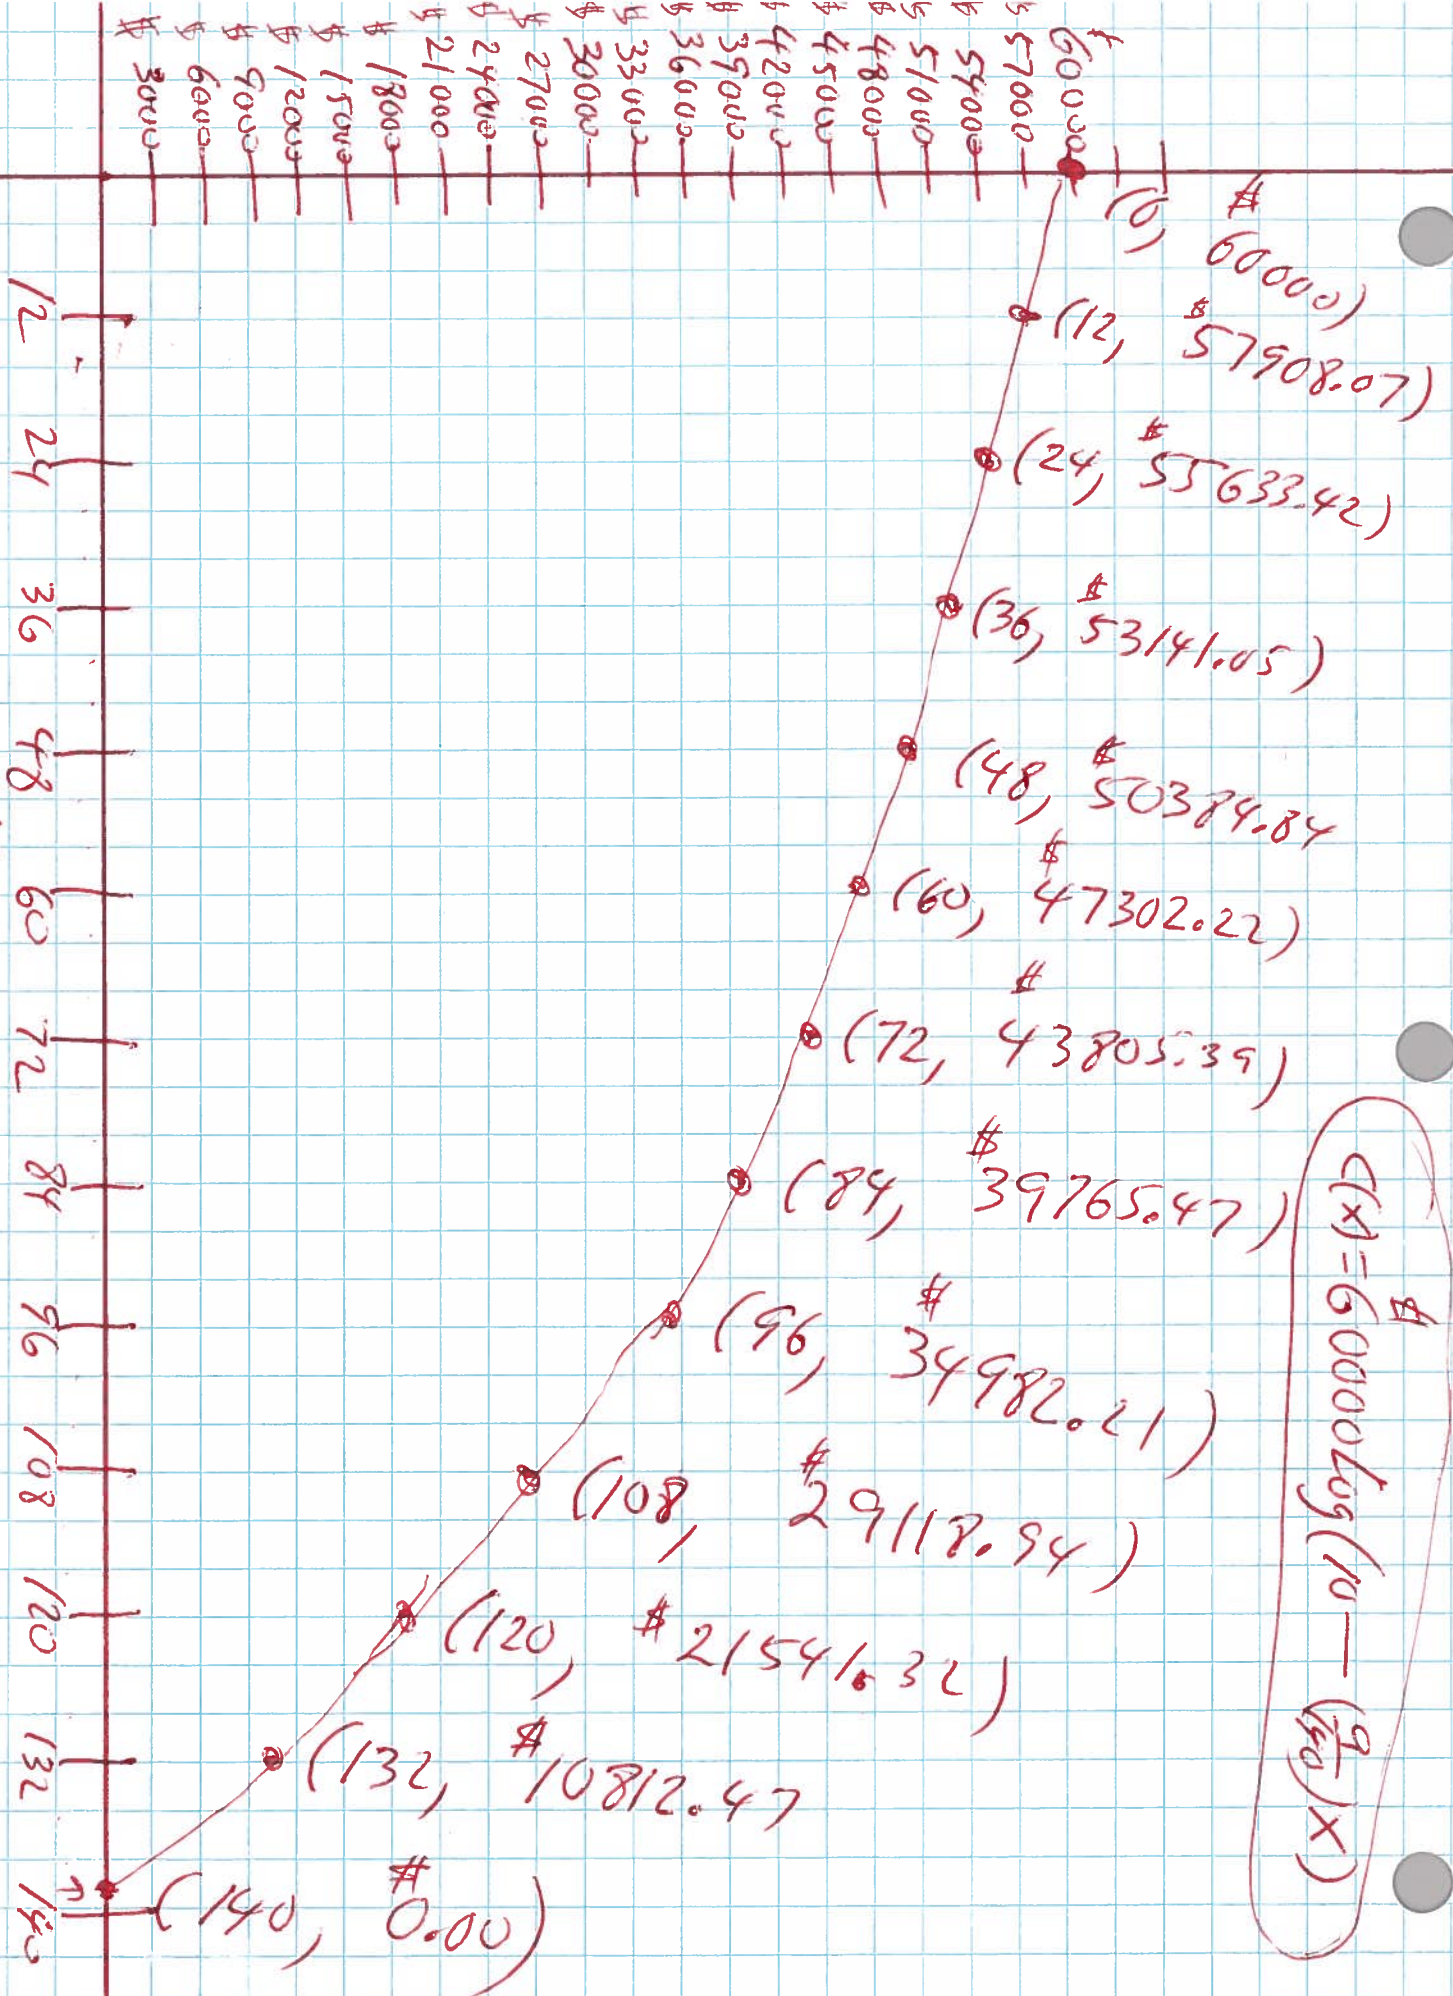 $ 60000
$ 57000
$ 54000
$ 51000
$ 48000
$ 45000
$ 42000
$ 39000
$ 36000
$ 33000
$ 30000
$ 27000
$ 24000
$ 21000
$ 18000
$ 15000
$ 12000
$ 9000
$ 6000
$ 3000
12
24
36
48
60
72
84
96
108
120
132
140
(0, $60000)
(12, $57908.07)
(24, $55633.42)
(36, $53141.05)
(48, $50384.84
(60, $47302.22)
(72, $43805.39)
(84, $39765.47)
(96, $34982.21)
(108, $29118.94)
(120, $21541.32)
(132, $10812.47
(140, $0.00)
C(x)=$60000log(10-(9/140)x)